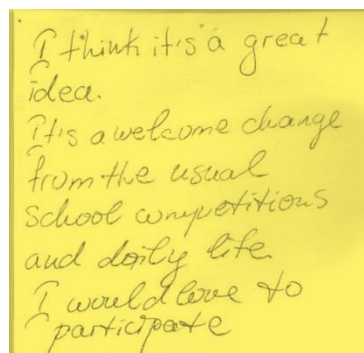 I think it's a great
idea.
It's a welcome change
from the usual
school competitions
and daily life.
I would love to
participate